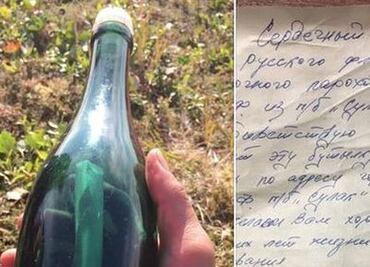 Сердечный
русского ф
очного парохо
ф из п/б „Сула
ветствую
т эту бутылк
по адресу
п/б „Сулак"
желаем Вам хор
их лет жизни
вания